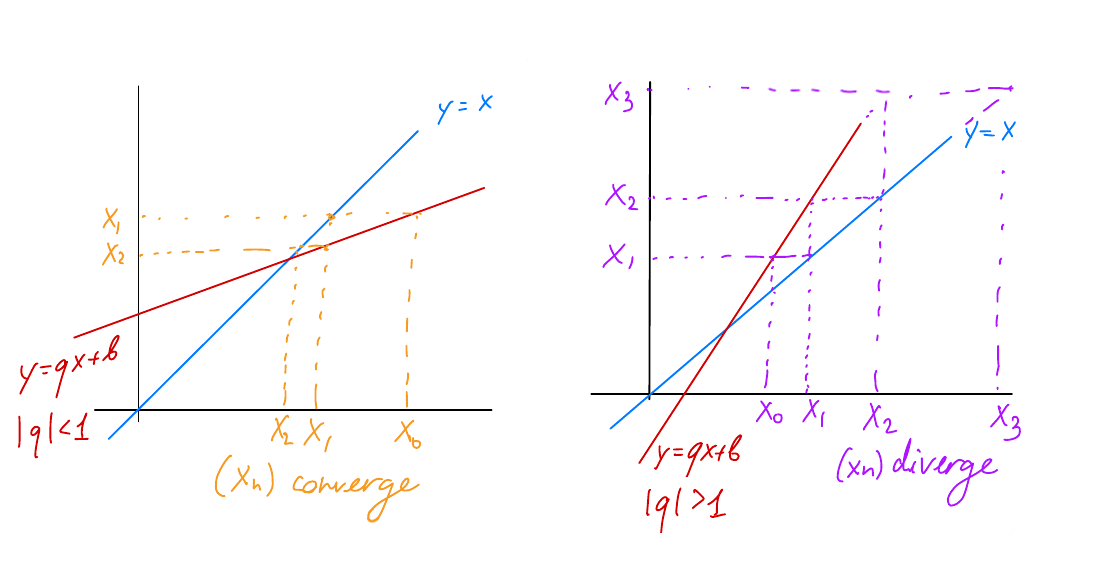 y = x
x₁
x₂
y=qx+b
|q|<1
x₂ x₁ x₀
(xₙ) converge
x₃
y=x
x₂
x₁
x₀ x₁ x₂ x₃
y=qx+b
(xₙ) diverge
|q|>1